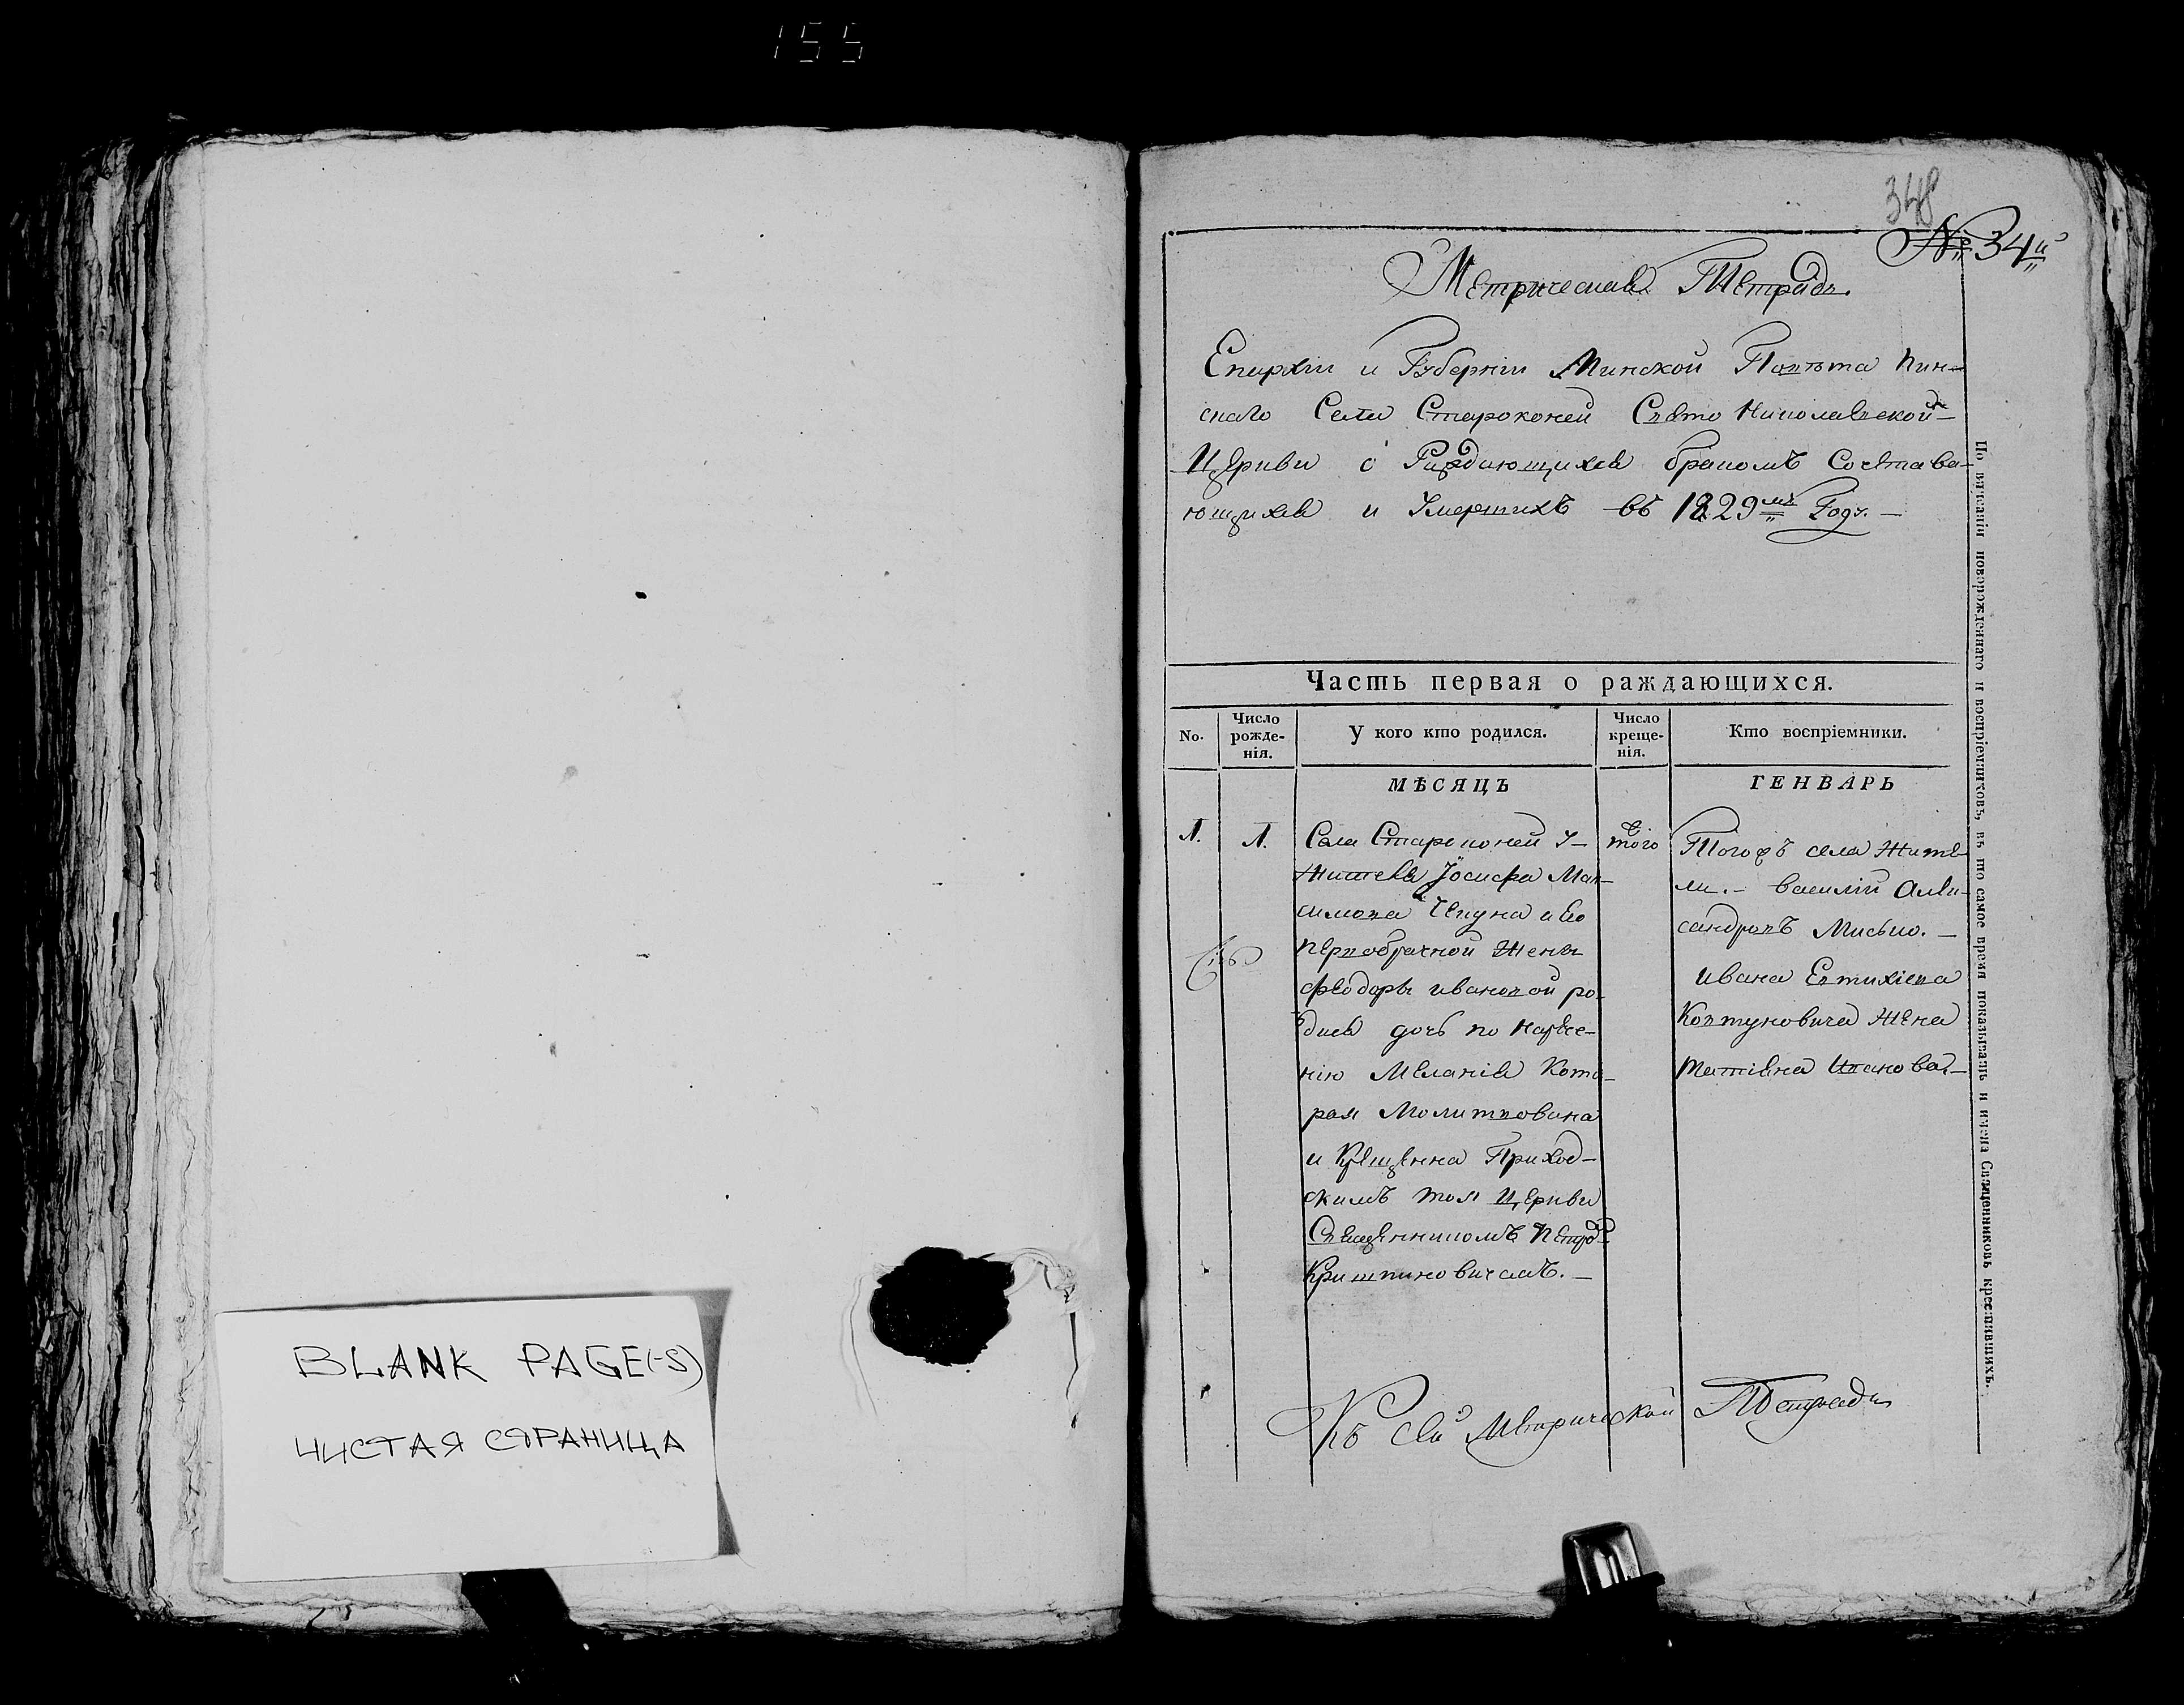 155
BLANK PAGE(-S)
ЧИСТАЯ СТРАНИЦА
348
№ 34й
Метрическая Тетрадь.
Епархіи и Губерніи Минской Повѣта Пин-
скаго Села Староконей Свято Николаевской
Церкви о Раждающихся бракомъ Сочетава-
ющихся и Умершихъ въ 1829мъ Году. —
Часть первая о раждающихся.
No.
Число рожде- нія.
У кого кто родился.
Число креще- нія.
Кто воспріемники.
МѢСЯЦЪ
ГЕНВАРЬ
1.
1.
Села Стареконей У-
Жителя Іосифа Мак-
симова Чепуна и Его
первобрачной Жены
Феодоры ивановой ро-
дися дочь по Нарѣче-
нію Меланія Кото-
рая Молитвована
и Крещенна Приход-
скимъ тоя Церкви
Священникомъ Петро
Криштиновичамъ. —
того
Тогожъ села Жите-
ли. — василій Алек-
сандровъ Мисько. —
ивана Евтихіева
Ковтуновича Жена
Татіяна Ивановая —
Къ сей Метрической Тетради
По вятсаніи новорожденнаго и воспріемниковъ, въ то самое время показывать и имена Священниковъ крестившихъ.